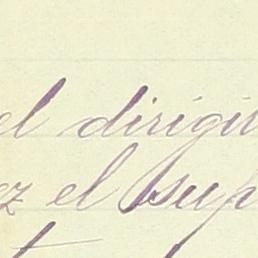 el dirigi
ez el sup